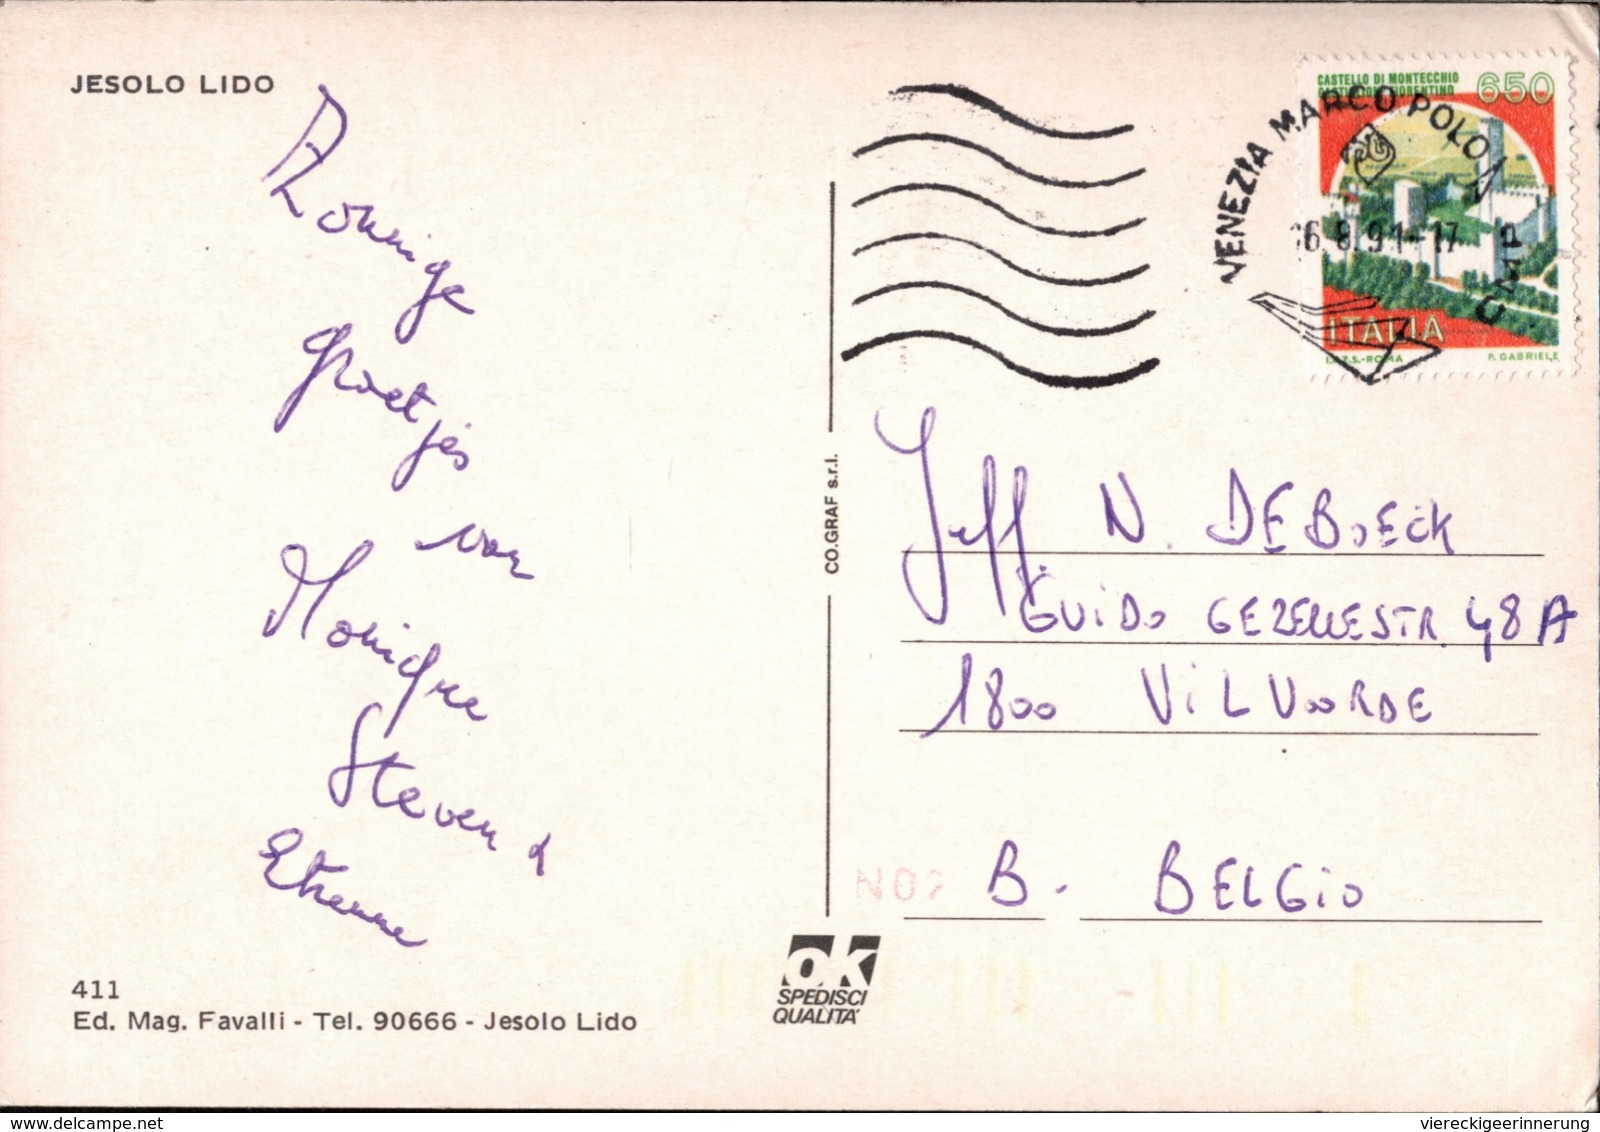 JESOLO LIDO
Zonnige
groetjes
van
Monique
Steven &
Etienne
411
Ed. Mag. Favalli - Tel. 90666 - Jesolo Lido
CO.GRAF s.r.l.
OK
SPEDISCI
QUALITA'
CASTELLO DI MONTECCHIO
650
ITALIA
I.P.Z.S.-ROMA P. GABRIELE
VENEZIA MARCO POLO
16.8.91-17
CMP
Jeff. N. DEBOECK
GUIDO GEZELLESTR. 48A
1800 VILVOORDE
B. BELGIO
delcampe.net
viereckigeerinnerung